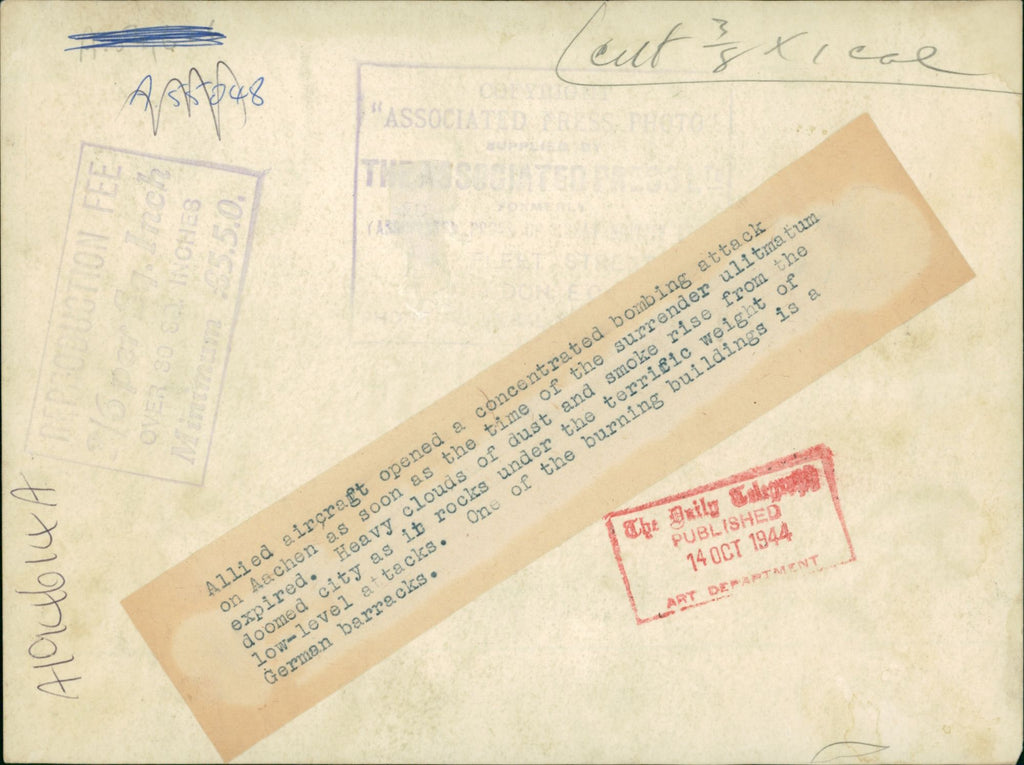 cut 3/8 X 1 col
COPYRIGHT
"ASSOCIATED PRESS PHOTO"
SUPPLIED BY
THE ASSOCIATED PRESS LTD
FORMERLY
REPRODUCTION FEE
per Sq. Inch
OVER 30 SQ. INCHES
Minimum £5.5.0.
Allied aircraft opened a concentrated bombing attack
on Aachen as soon as the time of the surrender ulitmatum
expired. Heavy clouds of dust and smoke rise from the
doomed city as it rocks under the terrific weight of
low-level attacks. One of the burning buildings is a
German barracks.
The Daily Telegraph
PUBLISHED
14 OCT 1944
ART DEPARTMENT